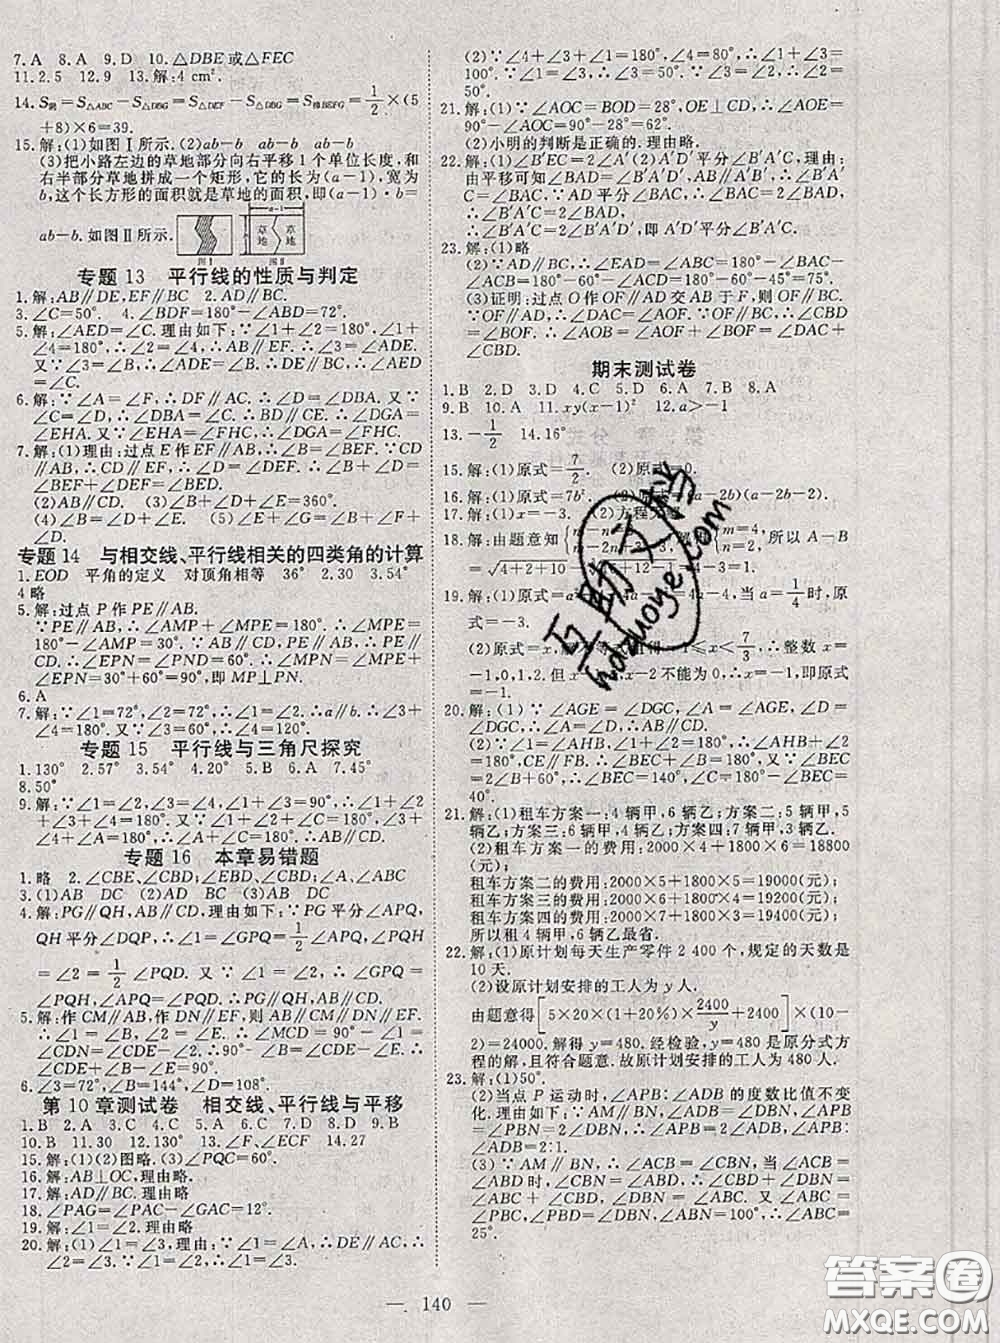 7. A　8. A　9. D　10. △DBE或△FEC
11. 2.5　12. 9　13. 解:4 cm².
14. S阴=S△ABC-S△DEF=S△DEF-S△DBG=S梯BEFG=1/2×(5
+8)×6=39.
15. 解:(1)如图Ⅰ所示. (2)ab-b　ab-b
(3)把小路左边的草地部分向右平移1个单位长度,和
右半部分草地拼成一个矩形,它的长为(a-1),宽为
b,这个长方形的面积就是草地的面积,即(a-1)·b=
ab-b. 如图Ⅱ所示.
a-1
草地　草地
图Ⅰ　图Ⅱ
专题13　平行线的性质与判定
1. 解:AB∥DE,EF∥BC　2. AD∥BC.
3. ∠C=50°.　4. ∠BDF=180°-∠B=72°.
5. 解:∠AED=∠C. 理由如下:∵∠1+∠2=180°,∠1+
∠4=180°,∴∠2=∠4,∴AB∥EF,∴∠3=∠ADE.
又∵∠3=∠B,∴∠ADE=∠B,∴DE∥BC,∴∠AED
=∠C.
6. 解:∵∠A=∠F,∴DF∥AC. ∴∠D=∠DBA. 又∵∠C
=∠D,∴∠C=∠DBA,∴DB∥EC,∴∠DGA=
∠EHA. 又∵∠DGA=∠FHC,∴∠EHA=∠FHC.
7. 解:(1)理由:过点E作EF∥AB,∴∠B=∠BEF. ∵CD
∥AB,∴CD∥EF,∴∠D=∠DEF,∴∠B+∠D=
∠BEF+∠DEF=∠BED.
(2)AB∥CD　(3)∠B+∠D+∠E=360°.
(4)∠B=∠D+∠E　(5)∠E+∠G=∠B+∠F+∠D.
专题14　与相交线、平行线相关的四类角的计算
1. EOD　平角的定义　对顶角相等　36°　2. 30　3. 54°
4略
5. 解:过点P作PE∥AB.
∵PE∥AB,∴∠AMP+∠MPE=180°. ∴∠MPE=
180°-∠AMP=30°. ∵AB∥CD,PE∥AB,∴PE∥
CD,∴∠EPN=∠PND=60°. ∴∠MPN=∠MPE+
∠EPN=30°+60°=90°,即MP⊥PN.
6. A
7. 解:∵∠1=72°,∠2=72°,∴∠1=∠2,∴a∥b. ∴∠3+
∠4=180°. ∵∠3=60°,∴∠4=120°.
专题15　平行线与三角尺探究
1. 130°　2. 57°　3. 54°　4. 20°　5. B　6. A　7. 45°
8. 50°
9. 解:∵∠1=∠2,∠3=∠4,∠1+∠3=90°,∴∠1+∠2
+∠3+∠4=180°. 又∵∠1+∠2=180°,∴∠3+
∠4+∠4=180°,∴∠A∥CD.
专题16　本章易错题
1. 略　2. ∠CBE、∠CBD;∠EBD、∠CBD;∠A、∠ABC
3. (1)AD　BC　(2)AB　DC
4. 解:PG∥QH,AB∥CD,理由如下:∵PG平分∠APQ,
QH平分∠DQP,∴∠1=∠GPQ=1/2∠APQ,∠PQH
=∠2=1/2∠PQD. 又∵∠1=∠2,∴∠GPQ=
∠PQH,∠APQ=∠PQD. ∴PG∥QH,AB∥CD.
5. 解:作CM∥AB,作DN∥EF,则AB∥CM∥DN∥EF.
∴∠1=∠B,∠2=∠E. ∴∠MCD=90°-∠1=
∠CDN=∠CDE-∠2. ∴90°-∠B=∠CDE-∠E,
∴∠B+∠CDE-∠E=90°.
6. ∠3=72°　7. ∠2=120°
第10章测试卷　相交线、平行线与平移
1. B　2. A　3. C　4. C　5. A　6. C　7. D　8. D　9. D
10. B　11. 30　12. 130°　13. ∠F、∠ECF　14. 27
15. 解:(1)(2)图略. (3)∠PQC=60°.
16. 解:AB⊥OC,理由略.
17. 解:AD∥BC. 理由略
18. ∠PAG=∠PAC-∠GAC=12°.
19. 解:∠1=∠2. 理由略
20. 解:(1)∠1=∠3,理由:∵∠1=∠A,∴DE∥AC,∴
∠2=∠3. ∵∠1=∠2,∴∠1=∠3.
(2)∵∠4+∠3+∠1=180°,∠4=80°,∴∠3+∠1=
100°. ∵∠1=∠3,∴∠3=50°,∵∠2=∠3,∴∠2=
50°.
21. 解:(1)∵∠AOC=BOD=28°,OE⊥CD,∴∠AOE=
90°-∠AOC=90°-28°=62°.
(2)小明的判断是正确的. 理由略
22. 解:∠B'EC=2∠A'(2)A'D'平分∠B'A'C,理由如下:
由平移可知∠BAD=∠B'A'D',AB∥A'B',∴∠B'A'C
=∠BAC,∵AD平分∠BAC,∴∠BAC=2∠BAD,
∴∠B'A'C=2∠BAD,
∴∠B'A'C=2∠B'A'D',即A'D'平分∠B'A'C.
23. 解:(1)略
(2)∵OB平分∠AOC,∴∠AOB=∠BOC=60°,
∵BC∥OA,∴∠OBC=∠AOB=60°.
(3)证明:过点O作OF∥AD交AB于F,则OF∥BC.
∵OF∥AD,∴∠AOF=∠OAD. ∵OF∥BC,∴∠BOF
=∠OBC. ∴∠AOB=∠AOF+∠BOF=∠DAC+
∠CBD.
期末测试卷
1. B　2. D　3. D　4. C　5. D　6. A　7. B　8. A
9. B　10. A　11. xy(x-1)²　12. a>-1
13. -1/2　14. 16°
15. 解:(1)原式=7/2. (2)原式=0.
16. 解:(1)原式=7b². (2)原式=(a-2b)(a-2b-2).
17. 解:(1)x=-3. (2)方程无
18. 解:由题意知　所以A-B
=
19. 解:(1)原式=　4a-4,当a=1/4时,原
式=-3.
(2)原式=x,　≤x≤7/3,∴整数x=
-1,0,1,2. 但x=0,1,2时　不能为0,∴x=-1,即原
式=-1.
20. 解:(1)∵∠AGE=∠DGC,∠AGE=∠A,∠D=
∠DGC,∴∠A=∠D,∴AB∥CD.
(2)∵∠1+∠2=180°,∠AHB=∠1,∴∠AHB+∠2=
180°,CE∥FB. ∴∠BEC+∠B=180°,∵∠BEC=
2∠B+60°,∴∠BEC=140°,∠C=180°-∠BEC=
40°.
21. 解:(1)租车方案一:4辆甲,6辆乙;方案二:5辆甲,5
辆乙;方案三:6辆甲,4辆乙;方案四:7辆甲,3辆乙.
(2)租车方案一的费用:2000×4+1800×6=18800
(元);
租车方案二的费用:2000×5+1800×5=19000(元);
租车方案三的费用:2000×6+1800×4=19200(元);
租车方案四的费用:2000×7+1800×3=19400(元);
所以租4辆甲,6辆乙最省.
22. 解:(1)原计划每天生产零件2 400个,规定的天数是
10天.
(2)设原计划安排的工人为y人.
由题意得[5×20×(1+20%)×2400/y+2400]×(10-
2)=24000. 解得y=480. 经检验,y=480是原分式方
程的解,且符合题意. 故原计划安排的工人为480人.
23. 解:(1)50°.
(2)当点P运动时,∠APB:∠ADB的度数比值不变
化. ∵AM∥BN,∴∠APB=∠PBN,∠ADB=∠DBN,
∠PBN=2∠DBN,∴∠APB=2∠ADB,∴∠APB:
∠ADB=2:1.
(3)∵AM∥BN,∴∠ACB=∠CBN,当∠ACB=
∠ABD时,∠CBN=∠ABD,∴∠CBN=∠DBN=
∠ABC+∠CBD,∠DBN=∠ABC. 又∵∠CBP=
∠PBC,∠PBD=∠DBN,∠ABN=100°,∴∠ABC=
25°.
互助文档
hdzuoye.com
— 140 —
答案圈
MXQE.COM